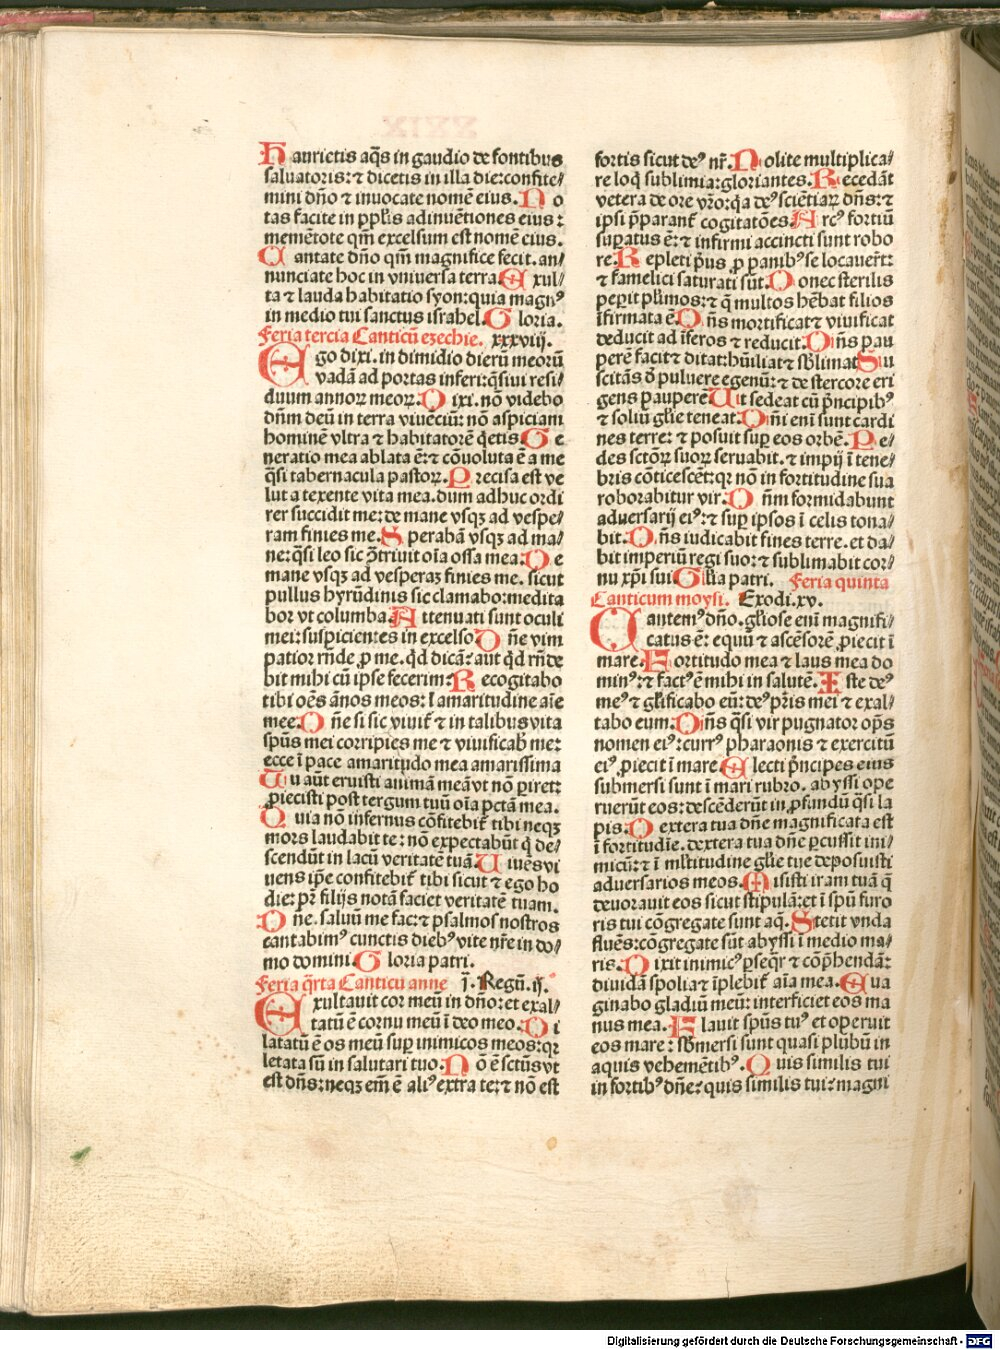 Haurietis aq̃s in gaudio de fontibus
saluatoris: ⁊ dicetis in illa die: confite⸗
mini dño ⁊ inuocate nomẽ eius. No
tas facite in ppl̃is adinuẽtiones eius:
memẽtote qm̃ excelsum est nomẽ eius.
Cantate dño qm̃ magnifice fecit. an⸗
nunciate hoc in vniuersa terra. Exul⸗
ta ⁊ lauda habitatio syon: quia magnꝰ
in medio tui sanctus israhel. Gloria.
Feria tercia Canticũ ezechie. xxxviij.
Ego dixi. in dimidio dierũ meorũ
vadã ad portas inferi: q̃siui resi⸗
duum annoꝝ meoꝝ. Dixi. nõ videbo
dñm deũ in terra viuẽciũ: nõ aspiciam
hominẽ vltra ⁊ habitatorẽ q̃etis. Ge
neratio mea ablata ẽ: ⁊ cõuoluta ẽ a me
q̃si tabernacula pastoꝝ. Precisa est ve
lut a texente vita mea. dum adhuc ordi
rer succidit me: de mane vsqꝫ ad vespe⸗
ram finies me. Sperabã vsqꝫ ad ma⸗
ne: q̃si leo sic ꝯtriuit oĩa ossa mea: De
mane vsqꝫ ad vesperaꝫ finies me. sicut
pullus hyrũdinis sic clamabo: medita
bor vt columba. Attenuati sunt oculi
mei: suspicientes in excelso. Dñe vim
patior rñde ꝓ me. qd̃ dicã: aut qd̃ rñde
bit mihi cũ ipse fecerim: Recogitabo
tibi oẽs ãnos meos: ĩ amaritudine aĩe
mee. Dñe si sic viuit̃ ⁊ in talibus vita
spũs mei corripies me ⁊ viuificab̃ me:
ecce ĩ pace amaritudo mea amarissima
Tu aũt eruisti animã meã vt nõ ꝑiret:
ꝓiecisti post tergum tuũ oĩa pctã mea.
Quia nõ infernus cõfitebit̃ tibi neqꝫ
mors laudabit te: nõ expectabũt q̃ de⸗
scendũt in lacũ veritatẽ tuã. Uiuẽs vi
uens ip̃e confitebit̃ tibi sicut ⁊ ego ho
die: pr̃ filijs notã faciet veritatẽ tuam.
Dñe. saluũ me fac: ⁊ psalmos nostros
cantabimꝰ cunctis diebꝰ vite nr̃e in do⸗
mo domini. Gloria patri.
Feria q̃rta Canticũ anne ĩ. Regũ. ij.
Exultauit cor meũ in dño: et exal⸗
tatũ ẽ cornu meũ ĩ deo meo. Di
latatũ ẽ os meũ suꝑ inimicos meos: qꝛ
letata sũ in salutari tuo. Nõ ẽ sctũs vt
est dñs: neqꝫ em̃ ẽ aliꝰ extra te: ⁊ nõ est
fortis sicut deꝰ nr̃. Nolite multiplica⸗
re loq̃ sublimia: gloriantes. Recedãt
vetera de ore vr̃o: q̃a deꝰ sciẽtiaꝝ dñs: ⁊
ipsi p̃parant̃ cogitatões. Arcꝰ fortiũ
suꝑatus ẽ: ⁊ infirmi accincti sunt robo
re. Repleti p̃us ꝓ panibꝰ se locauer̃t:
⁊ famelici saturati sũt. Donec sterilis
peꝑit pl̃imos: ⁊ q̃ multos hẽbat filios
ĩfirmata ẽ. Dñs mortificat ⁊ viuificat
deducit ad ĩferos ⁊ reducit. Dñs pau
perẽ facit ⁊ ditat: hũiliat ⁊ sb̃limat. Su
scitãs d̃ puluere egenũ: ⁊ de stercore eri
gens pauperẽ. Uit sedeat cũ p̃ncipibꝰ
⁊ soliũ gl̃ie teneat. Dñi eni sunt cardi
nes terre: ⁊ posuit suꝑ eos orbẽ. Pe⸗
des sctõꝝ suoꝝ seruabit. ⁊ impij ĩ tene⸗
bris cõticescẽt: qꝛ nõ in fortitudine sua
roborabitur vir. Dñm formidabunt
aduersarij eiꝰ: ⁊ suꝑ ipsos ĩ celis tona⸗
bit. Dñs iudicabit fines terre. et da⸗
bit imperiũ regi suo: ⁊ sublimabit cor⸗
nu xp̃i sui. Gl̃ia patri. Feria quinta
Canticum moysi. Exodi. xv.
Cantemꝰ dño. gl̃iose eni magnifi⸗
catus ẽ: equũ ⁊ ascẽsorẽ ꝓiecit ĩ
mare. Fortitudo mea ⁊ laus mea do
minꝰ: ⁊ factꝰ ẽ mihi in salutẽ. Iste deꝰ
meꝰ ⁊ gl̃ificabo eũ: deꝰ pr̃is mei ⁊ exal⸗
tabo eum. Dñs q̃si vir pugnator op̃s
nomen eiꝰ: currꝰ pharaonis ⁊ exercitũ
eiꝰ ꝓiecit ĩ mare. Electi p̃ncipes eius
submersi sunt ĩ mari rubro. abyssi ope
ruerũt eos: descẽderũt in ꝓfundũ q̃si la
pis. Dextera tua dñe magnificata est
ĩ fortitudĩe. dextera tua dñe ꝑcussit ini⸗
micũ: ⁊ ĩ ml̃titudine gl̃ie tue deposuisti
aduersarios meos. Misisti iram tuã q̃
deuorauit eos sicut stipulã: et ĩ spũ furo
ris tui cõgregate sunt aq̃. Stetit vnda
fluẽs: cõgregate sũt abyssi ĩ medio ma⸗
ris. Dixit inimicꝰ ꝑseq̃r ⁊ cõp̃hendã:
diuidã spolia ⁊ ĩplebit̃ aĩa mea. Eua
ginabo gladiũ meũ: interficiet eos ma
nus mea. Flauit spũs tuꝰ et oꝑuit
eos mare: sb̃mersi sunt quasi plũbũ in
aquis vehemẽtibꝰ. Quis similis tui
in fortibꝰ dñe: quis similis tui: magni
Digitalisierung gefördert durch die Deutsche Forschungsgemeinschaft - DFG